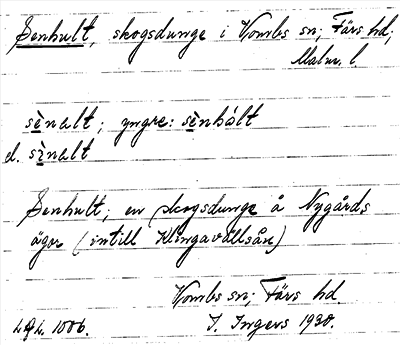 Senhult, skogsdunge i Vombs sn; Färs hd;
Malm. l.
sènalt; yngre: sènhált
el. sìnalt
Senhult; en skogsdunge å Nygårds
ägor (intill Klingavällsån)
Vombs sn; Färs hd.
I. Ingers 1930.